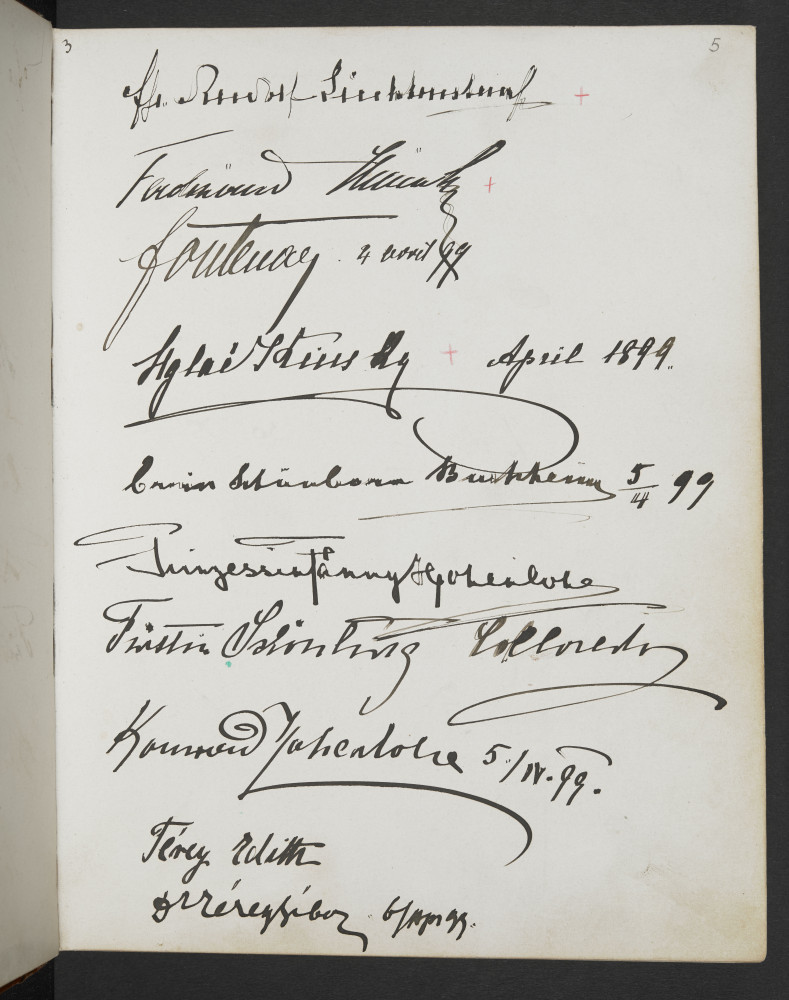 3
5
Rudolf Liechtenstein +
Ferdinand +
Fontenay . 4 avril 99
Aglaë Kinsky + April 1899.
Erwin Schönborn Buchheim 5/IV 99
Prinzessin Fanny Hohenlohe
Fürstin Schönburg Colloredo
Konrad Hohenlohe 5./IV. 99.
Térey Edith
Dr Térey Gábor 6/Apr 99.